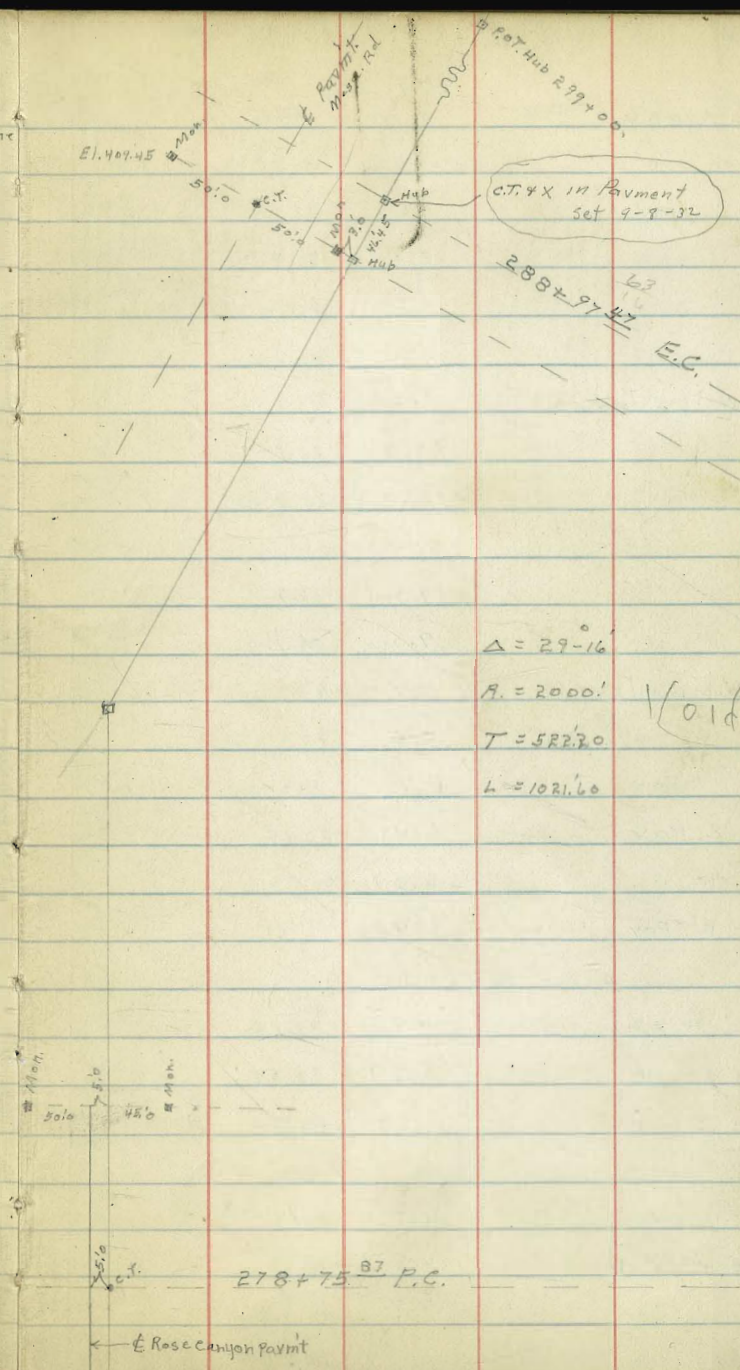 P.O.T. Hub 299+00.
℄ Pavm't.
Rd
Mon.
El. 409.45
50.'0
C.T.
50.'0
Mon
8.'0
46.'45
Hub
Hub
C.T. & X in Pavment
Set 9-8-32
63
288+97 47
E.C.
Δ = 29°-16'
R. = 2000.'
T = 522.'20
L = 1021.'60
Void
Mon.
50.'0
5.'0
45.'0
Mon.
5.'0
C.T.
278+75 87 P.C.
℄ Rose Canyon Pavm't